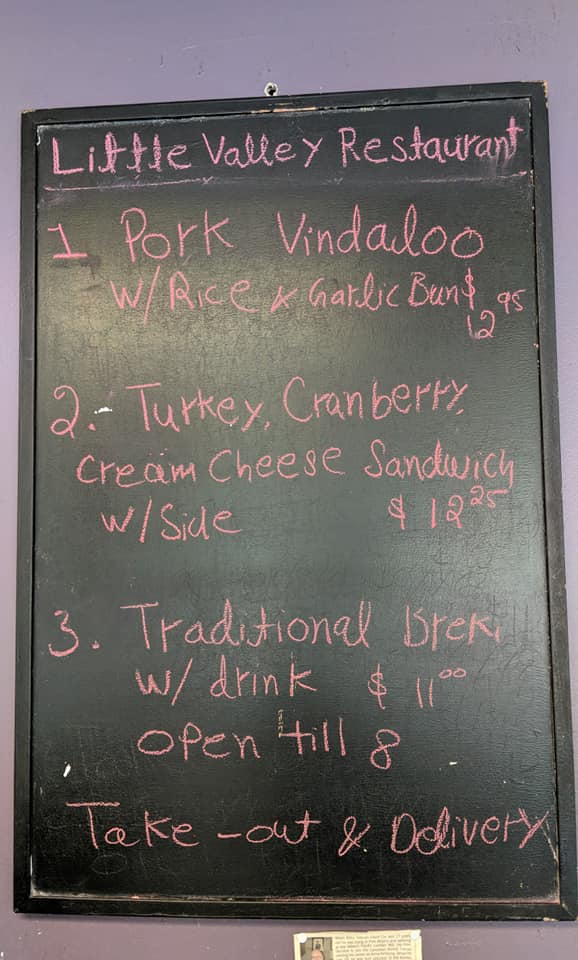 Little Valley Restaurant
1 Pork Vindaloo
W/Rice & Garlic Bun $12.95
2. Turkey, Cranberry,
Cream Cheese Sandwich
W/Side $12.25
3. Traditional Breki
W/ drink $11.00
Open till 8
Take-out & Delivery